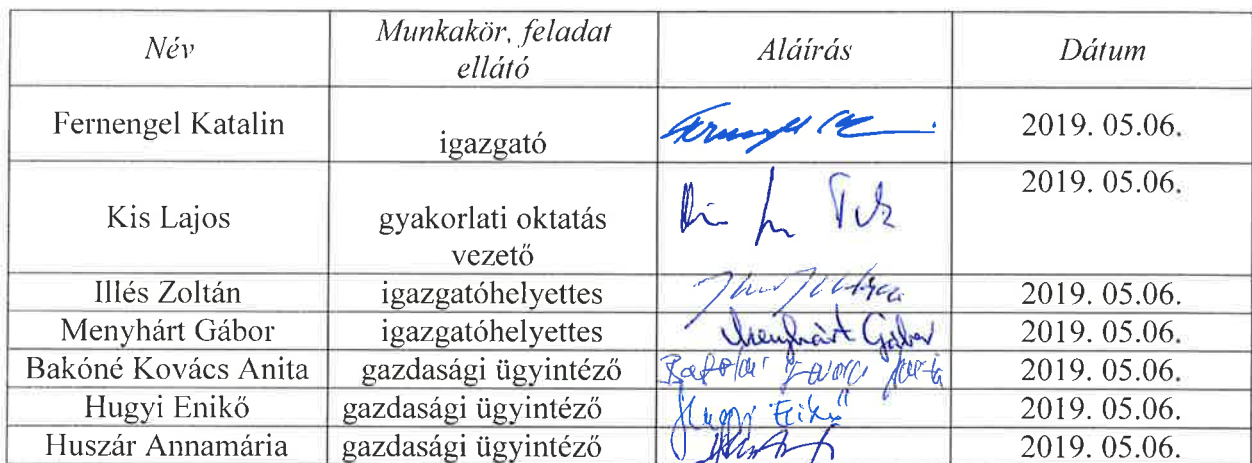 Név Munkakör, feladat ellátó Aláírás Dátum
Fernengel Katalin igazgató 2019. 05.06.
Kis Lajos gyakorlati oktatás vezető 2019. 05.06.
Illés Zoltán igazgatóhelyettes 2019. 05.06.
Menyhárt Gábor igazgatóhelyettes Menyhárt Gábor 2019. 05.06.
Bakóné Kovács Anita gazdasági ügyintéző 2019. 05.06.
Hugyi Enikő gazdasági ügyintéző Hugyi Enikő 2019. 05.06.
Huszár Annamária gazdasági ügyintéző 2019. 05.06.